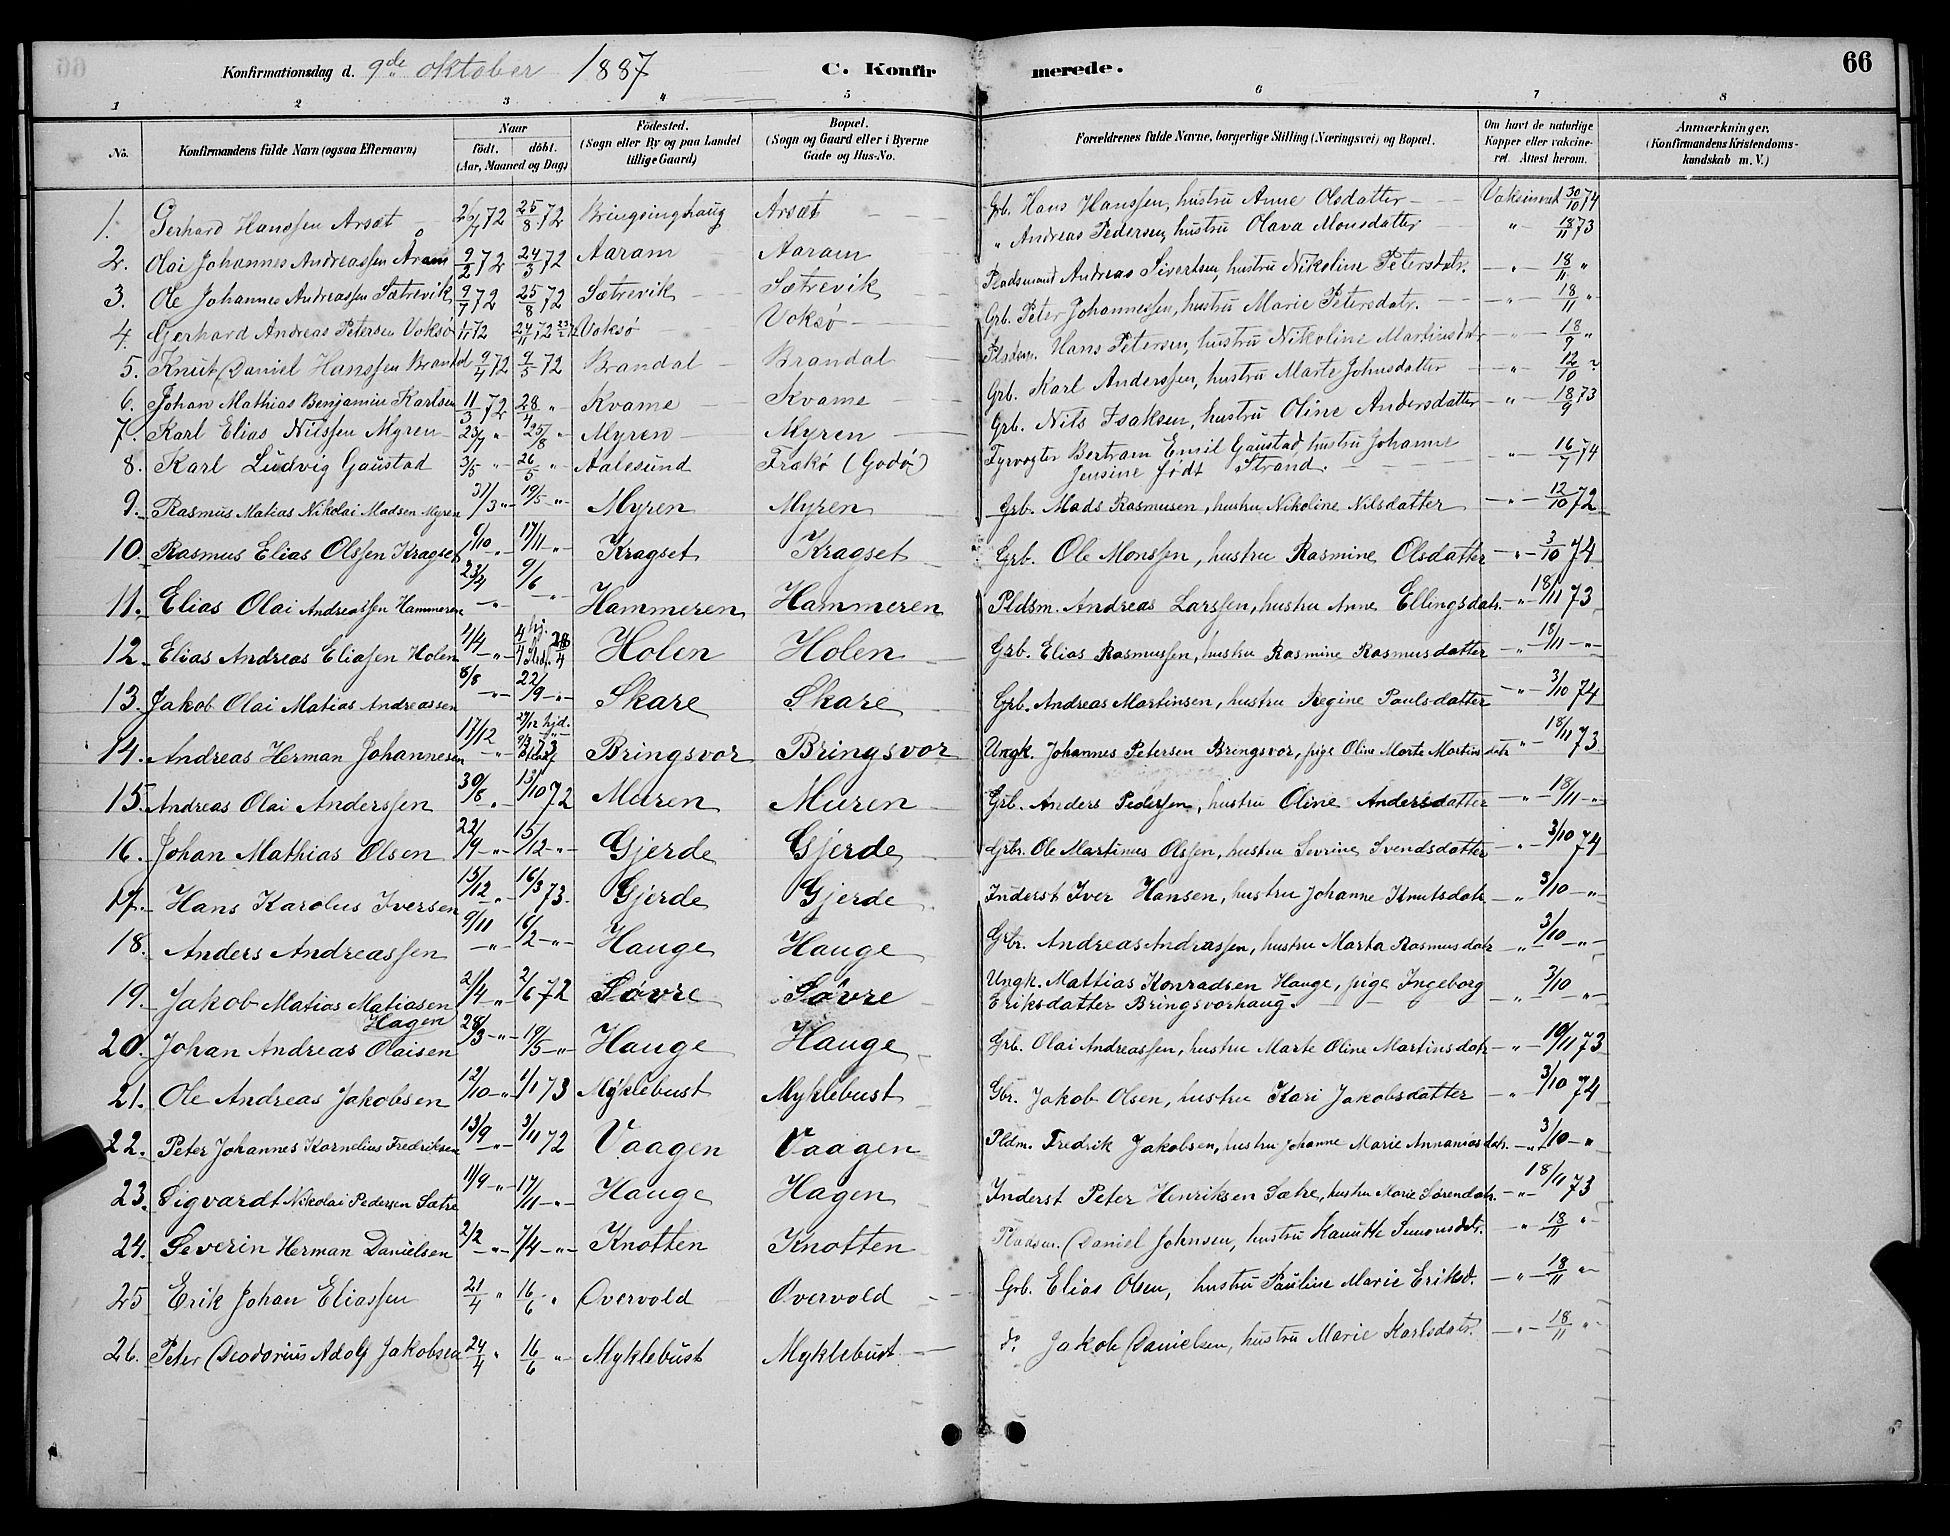 Konfirmationsdag d. 9de oktober 1887 C. Konfirmerede. 66
1 2 3 4 5 6 7 8
No. Konfirmandens fulde Navn (ogsaa Efternavn) Naar født. døbt. (Aar, Maaned og Dag) Fødested. (Sogn eller By og paa Landet tillige Gaard) Bopæl. (Sogn og Gaard eller i Byerne Gade og Hus-No. Forældrenes fulde Navne, borgerlige Stilling (Næringsvei) og Bopæl. Om havt de naturlige Kopper eller vakcineret. Attest herom. Anmærkninger. (Konfirmandens Kristendomskundskab m. V.)
1. Gerhard Hanssen Arsæt 72 25/8 72 Bringsinghaug Arsæt Grb. Hans Hanssen, hustru Anne Olsdatter Vaksineret 30/10 74
2. Olai Johannes Andreassen Aram 9/2 72 24/3 72 Aaram Aaram " Andreas Pedersen, hustru Olava Monsdatter " 18/11 73
3. Ole Johannes Andreassen Sætrevik 9/7 72 25/8 72 Sætrevik Sætrevik Pladsmand Andreas Sivertsen, hustru Nikoline Petersdatr. " 18/11 "
4. Gerhard Andreas Petersen Voksø 1/11 72 24/11 72 Voksø Voksø Grb. Peter Johannessen, hustru Marie Petersdatr. " 18/11 "
5. Knut Daniel Hanssen Brandal 9/4 72 9/5 72 Brandal Brandal Pladsm. Hans Petersen, hustru Nikoline Martinsdatr " 18/9 "
6. Johan Mathias Benjamin Karlsen 11/3 72 28/4 " Kvame Kvame Grb. Karl Anderssen, hustru Marte Johnsdatter " 12/10 "
7. Karl Elias Nilssen Myren 23/7 " 25/8 " Myren Myren Grb. Nils Isaksen, hustru Oline Andersdatter " 18/9 73
8. Karl Ludvig Gaustad 3/5 " 26/5 " Aalesund Frekø (Godø) Fyrvogter Bertram Emil Gaustad, hustru Johanne Jensine født Strand. " 16/7 74
9. Rasmus Matias Nikolai Madsen Myren 31/3 " 19/5 " Myren Myren Grb. Mads Rasmusen, hustru Nikoline Nilsdatter " 12/10 72
10. Rasmus Elias Olssen Kragset 6/10 " 17/11 " Kragset Kragset Grb. Ole Monssen, hustru Rasmine Olsdatter " 3/10 74
11. Elias Olai Andreassen Hammeren 23/4 " 9/6 " Hammeren Hammeren Pldsm. Andreas Larssen, hustru Anne Ellingsdatr. " 18/11 73
12. Elias Andreas Eliasen Holen 1/4 " 4/4 hj. 28/4 Holen Holen Grb. Elias Rasmussen, hustru Rasmine Rasmusdatter " 18/11 "
13. Jakob Olai Matias Andreassen 8/8 " 22/9 " Skare Skare Grb. Andreas Martinsen, hustru Regine Paulsdatter " 3/10 74
14. Andreas Herman Johannesen 17/12 " 27/12 hjd. Bringsvor Bringsvor Ungk. Johannes Petersen Bringsvor, pige Oline Marte Martinsdatr " 18/11 73
15. Andreas Olai Anderssen 30/8 " 13/10 72 Muren Muren Grb. Anders Pederssen, hustru Oline Andersdatter " 18/11 "
16. Johan Mathias Olsen 22/9 " 15/12 " Gjerde Gjerde Grbr. Ole Martinus Olssen, hustru Sevrine Svendsdatter " 3/10 74
17. Hans Karolus Iversen 15/12 " 16/3 73. Gjerde Gjerde Inderst Iver Hansen, hustru Johanne Knutsdatr " 3/10 "
18. Anders Andreassen 9/11 " 16/2 " Hauge Hauge Grbr. Andreas Andrassen, hustru Marta Rasmusdatr " 3/10 "
19. Jakob Matias Matiasen Hagen 21/4 " 2/6 72 Søvre Søvre Ungk. Mattias Konradsen Hauge, pige Ingeborg Eriksdatter Bringsvorhaug. " 3/10 "
20. Johan Andreas Olaisen 28/3 " 19/5 " Hauge Hauge Grb. Olai Andreassen, hustru Marte Oline Martinsdatr " 19/11 73
21. Ole Andreas Jakobsen 12/10 " 1/1 73 Myklebust Myklebust Gbr. Jakob Olsen, hustru Kari Jakobsdatter " 3/10 74
22. Peter Johannes Kornelius Fredriksen 13/9 " 3/11 72 Vaagen Vaagen Pldm. Fredrik Jakobsen, hustru Johanne Marie Annaniasdatr. " 3/10 "
23. Sigvardt Nikolai Pedersen Sætre 11/9 " 17/11 " Hauge Hagen Inderst Peter Henriksen Sætre, hustru Marie Sørendatr. " 18/11 73
24. Severin Herman Danielsen 2/2 " 7/4 " Knotten Knotten Pladsm. Daniel Johnsen, hustru Simonsdtr. " 18/11 "
25 Erik Johan Eliassen 21/4 " 16/6 " Overvold Overvold Grb. Elias Olsen, hustru Pauline Marie Eriksd. " 18/11 "
26. Peter Deodorius Adolf Jakobsen 24/4 " 16/6 " Myklebust Myklebust do. Jakob Danielsen, hustru Marie Karlsdatr. " 18/11 "